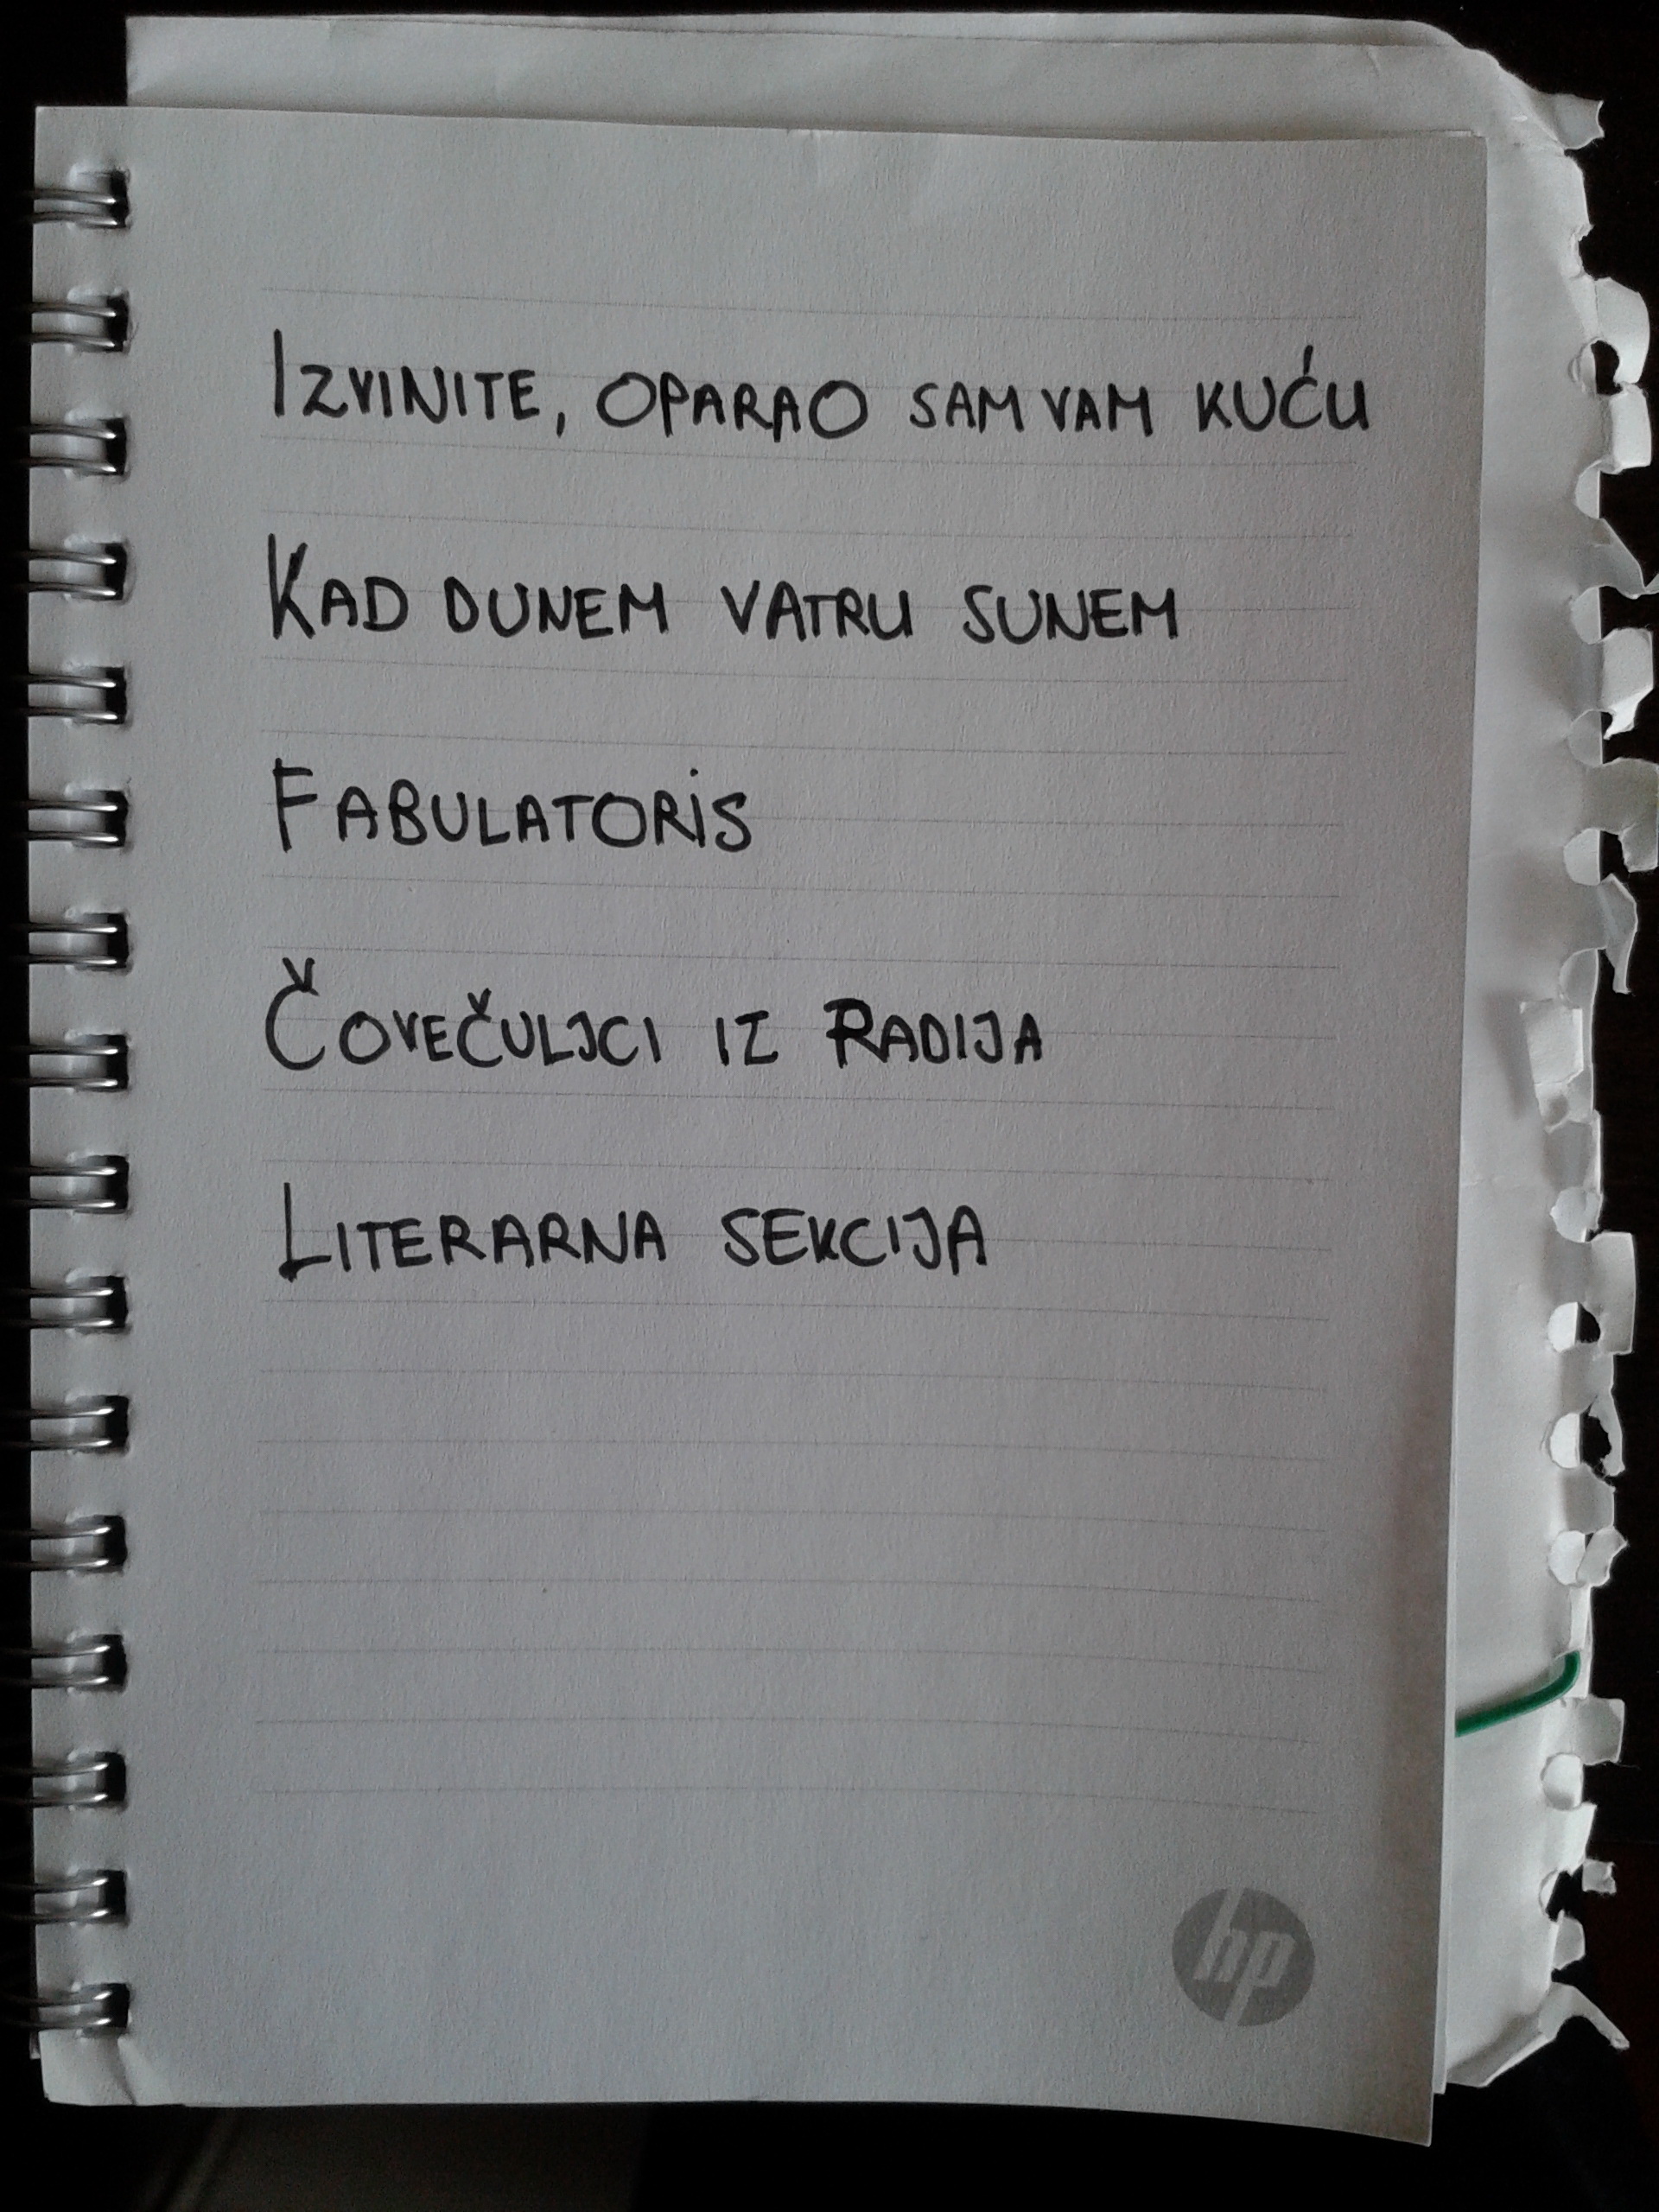 Izvinite, oparao sam vam kuću
Kad dunem vatru sunem
Fabulatoris
Čovečuljci iz Radija
Literarna sekcija
hp